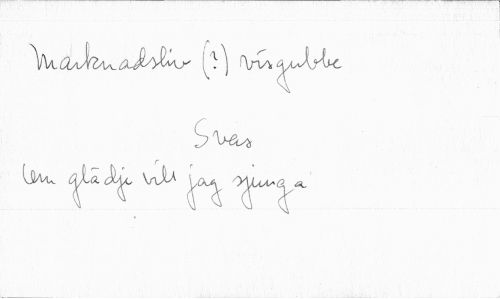 Marknadsliv (?) visgubbe
Svas
Om glädje vill jag sjunga